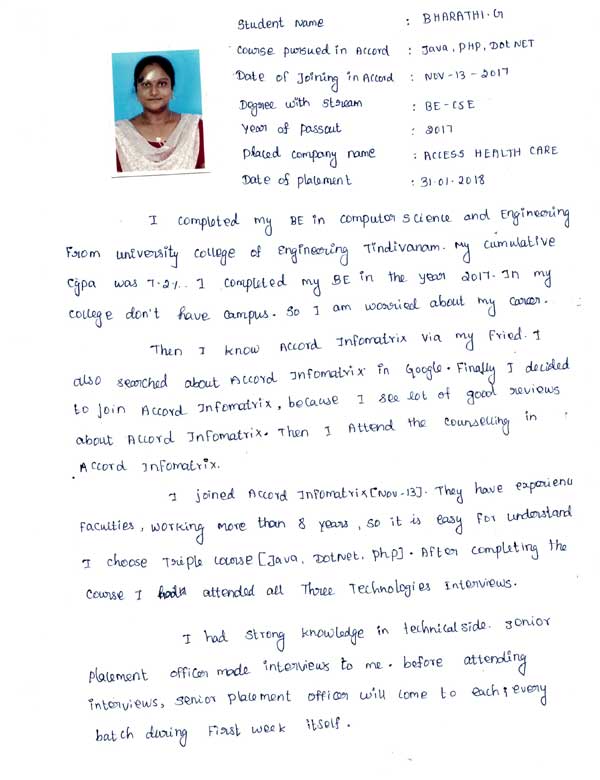 Student Name : BHARATHI.G
Course pursued in Accord : Java, PHP, Dot NET
Date of Joining in Accord : NOV-13-2017
Degree with Stream : BE-CSE
Year of passout : 2017
Placed company name : ACCESS HEALTH CARE
Date of placement : 31.01.2018
I completed my BE in computer science and Engineering
From university college of Engineering Tindivanam. My cumulative
Cgpa was 7.2%. I completed my BE in the year 2017. In my
college don't have campus. So I am worried about my career.
Then I know Accord Infomatrix via my Fried. I
also searched about Accord Infomatrix in Google. Finally I decided
to join Accord Infomatrix, because I see lot of good reviews
about Accord Infomatrix. Then I Attend the counselling in
Accord Infomatrix.
I joined Accord Infomatrix [Nov-13]. They have experienc
Faculties, working more than 8 years, so it is easy for understand
I choose Triple course [Java, DotNet, php]. After completing the
course I attended all Three Technologies Interviews.
I had strong knowledge in technical side. senior
placement officer made interviews to me. before attending
interviews, senior placement officer will come to each & every
batch during First week itself.